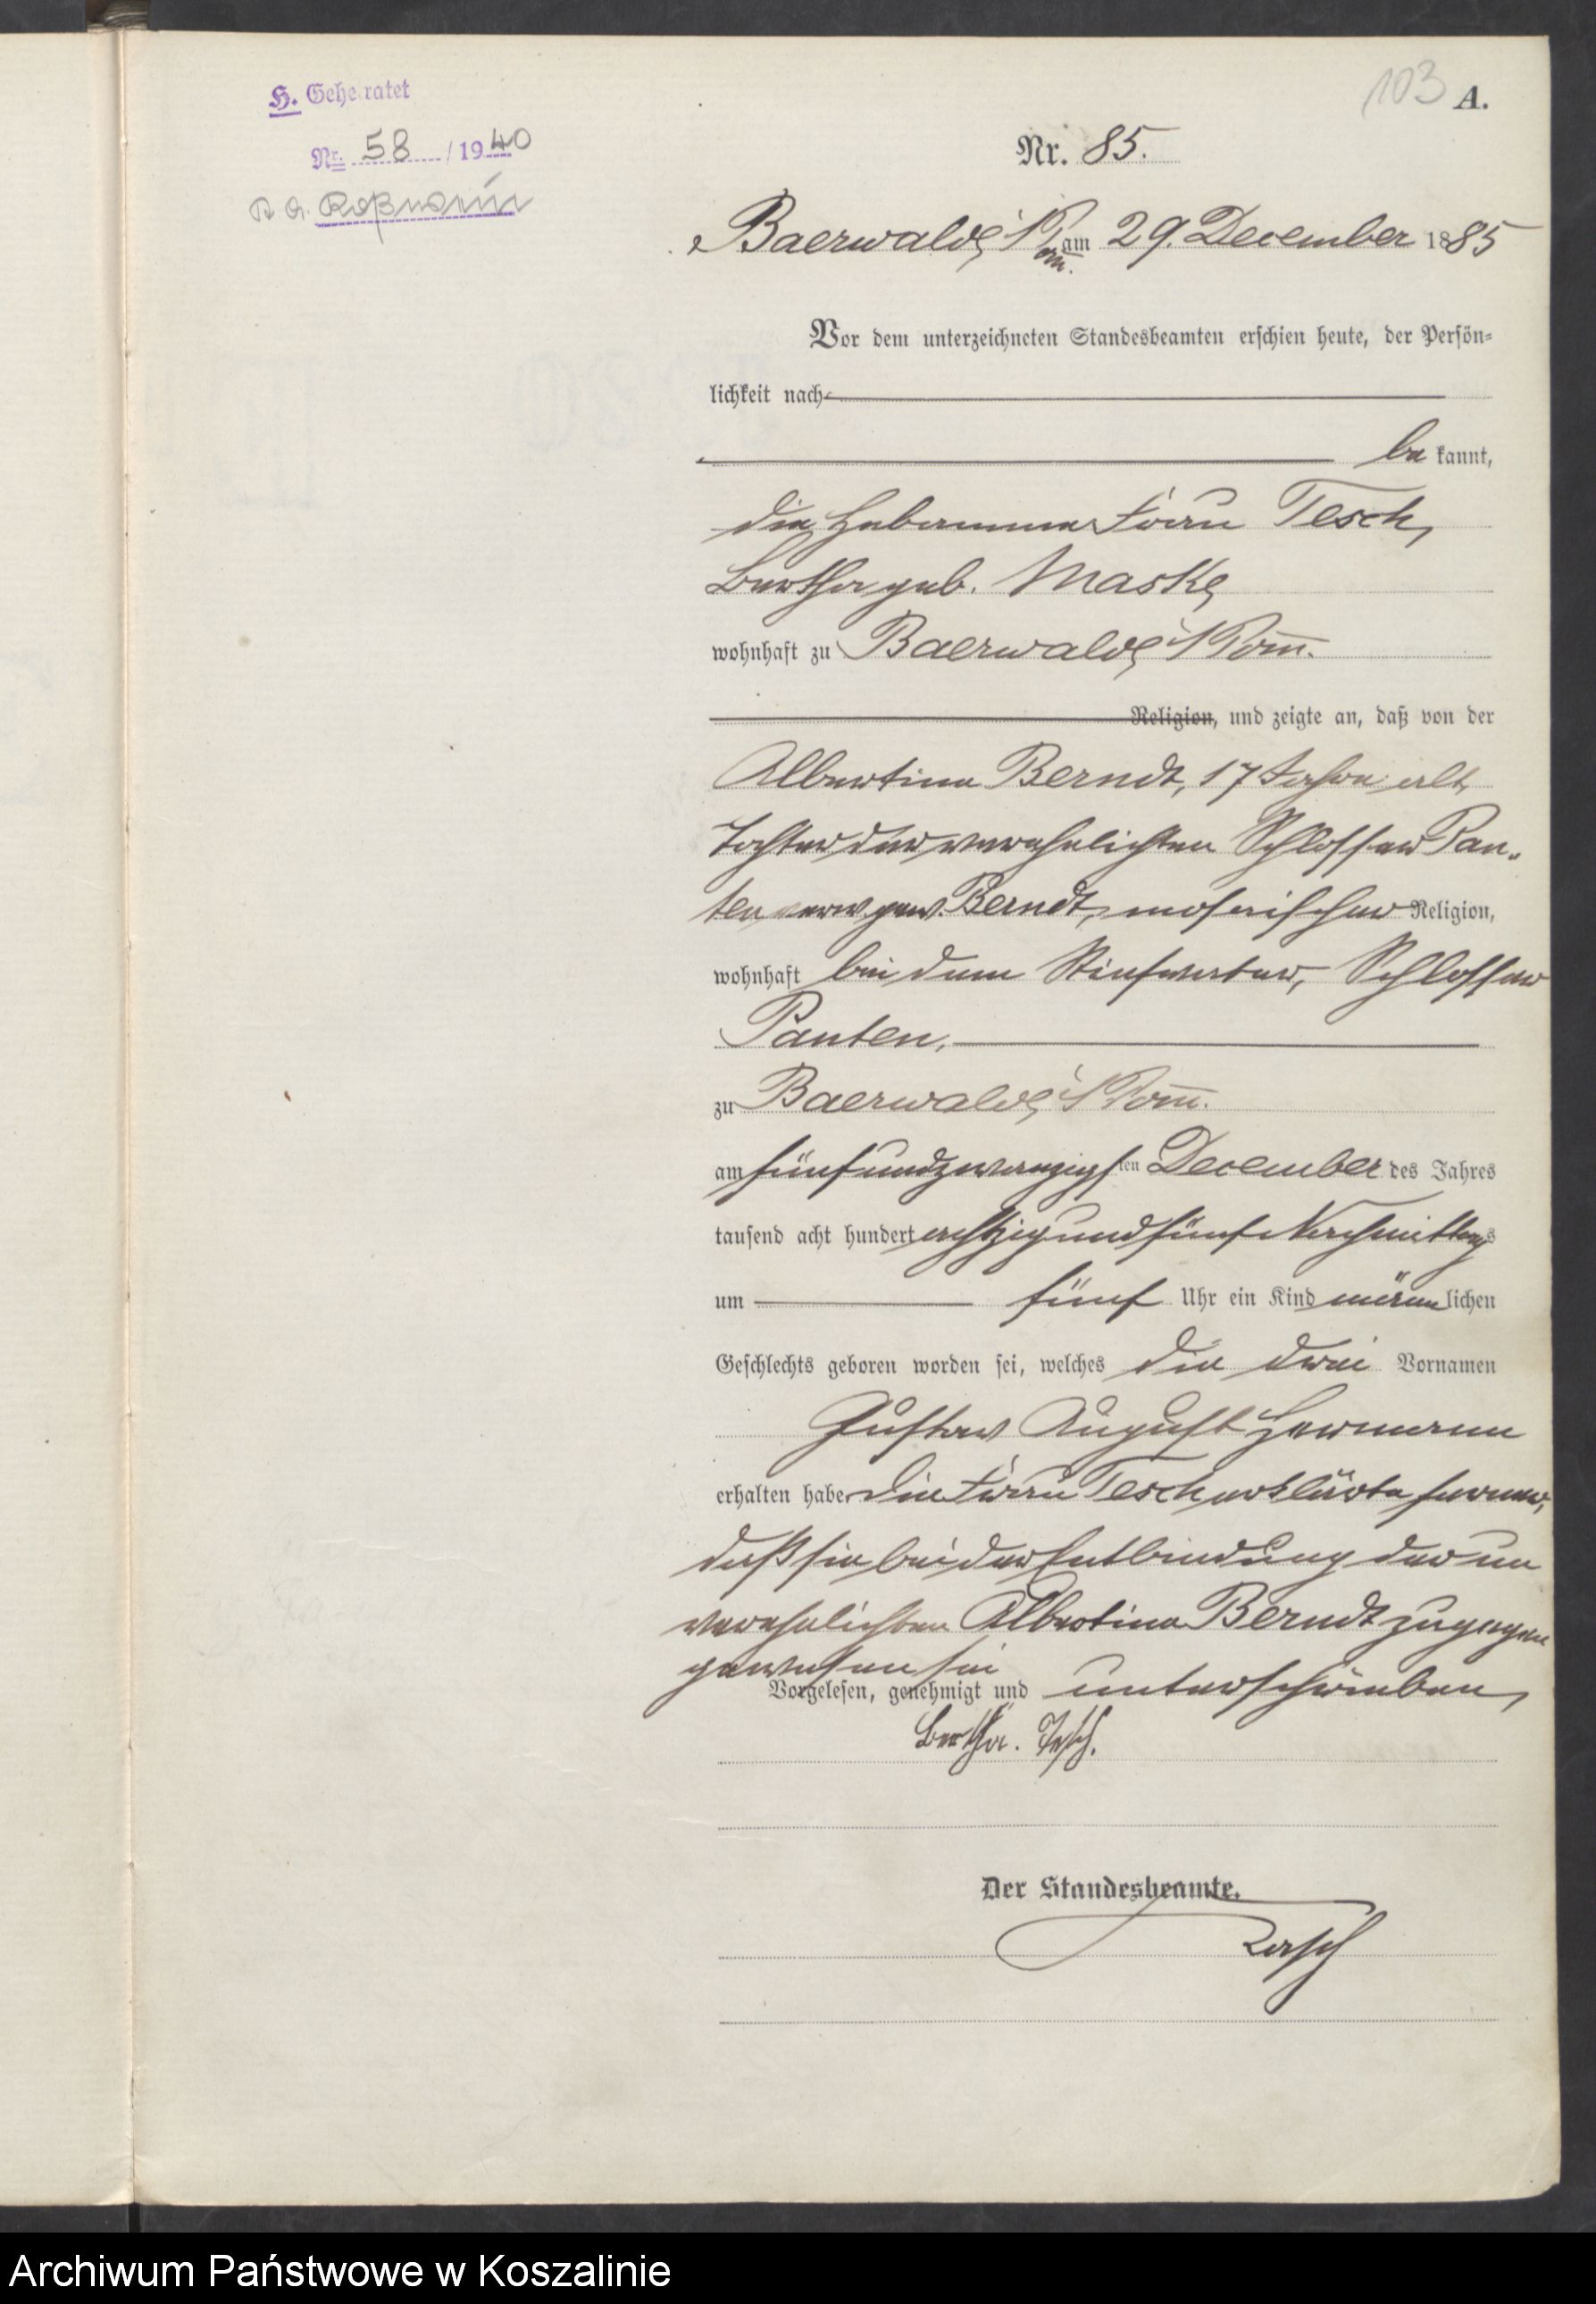 H. Geheiratet
Nr. 58 / 1940
St. A. Roßwein
103 A.
Nr. 85.
Baerwalde i/Pom. am 29. December 1885
Vor dem unterzeichneten Standesbeamten erschien heute, der Persön-
lichkeit nach
bekannt,
die Hebamme Frau Tesch,
Bertha geb. Maske,
wohnhaft zu Baerwalde i/Pom.
Religion, und zeigte an, daß von der
Albertine Berndt, 17 Jahre alt,
Tochter der verehelichten Schlosser Pan-
ten, verw. gew. Berndt, mosaischer Religion,
wohnhaft bei dem Stiefvater, Schlosser
Panten,
zu Baerwalde i/Pom.
am fünfundzwanzigsten December des Jahres
tausend acht hundert achtzig und fünf Nachmittags
um fünf Uhr ein Kind männlichen
Geschlechts geboren worden sei, welches die drei Vornamen
Gustav August Hermann
erhalten habe. Die Frau Tesch erklärte ferner,
daß sie bei der Entbindung der un
verehelichten Albertine Berndt zugegen
gewesen sei
Vorgelesen, genehmigt und unterschrieben,
Bertha. Tesch.
Der Standesbeamte.
Archiwum Państwowe w Koszalinie